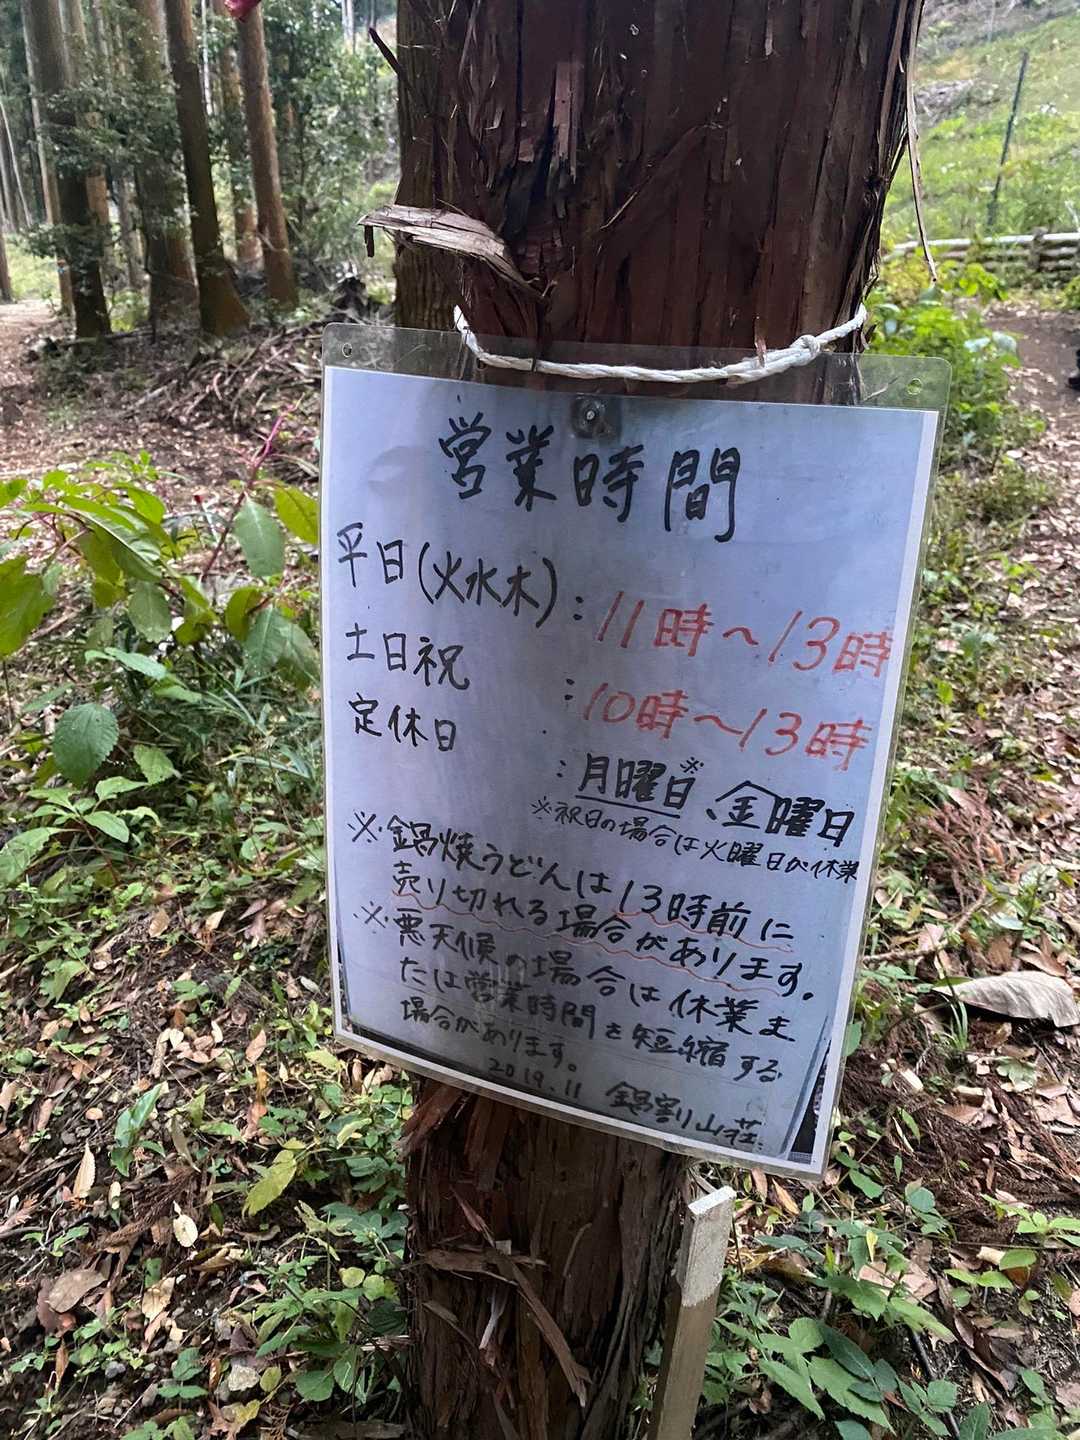 営業時間
平日(火水木):11時〜13時
土日祝:10時〜13時
定休日:月曜日※、金曜日
※祝日の場合は火曜日が休業
※鍋焼うどんは13時前に
売り切れる場合があります。
※悪天候の場合は休業ま
たは営業時間を短縮する
場合があります。
2019.11 鍋割山荘